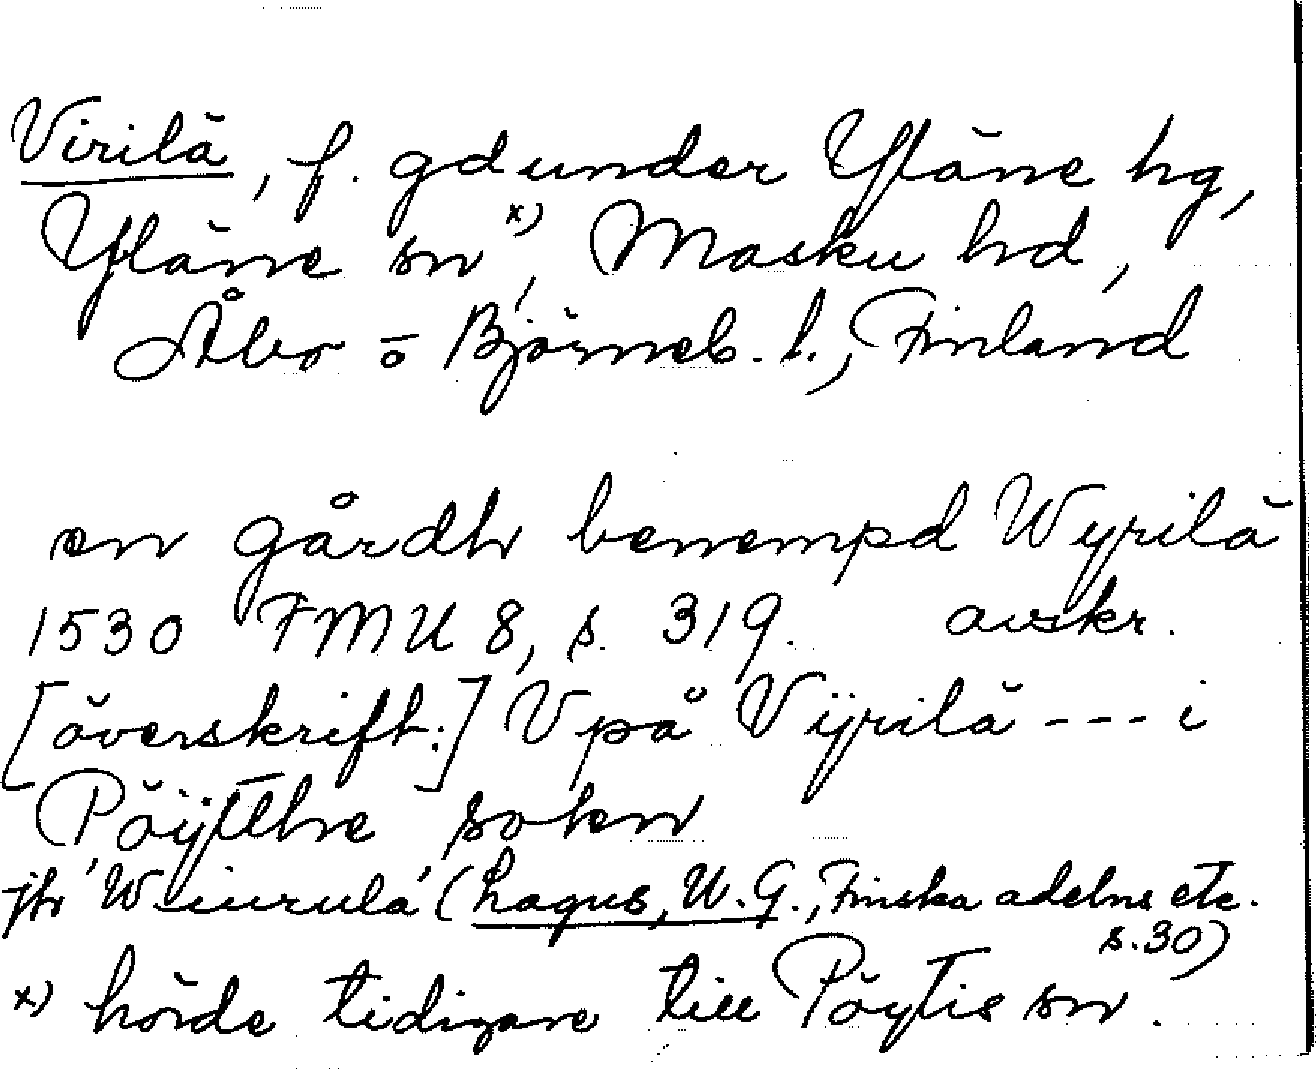 Virilä, f. gd under Yläne hg,
Yläne sn x), Masku hd,
Åbo o Björneb. l., Finland
en gårdh benempd Wyrilä
1530 FMU 8, s. 319. avskr.
[överskrift:] Vpå Vÿrilä --- i
Pöÿtthe soken
jfr 'Wiurula' (Lagus, W. G., Finska adelns etc.
s. 30)
x) hörde tidigare till Pöytis sn.